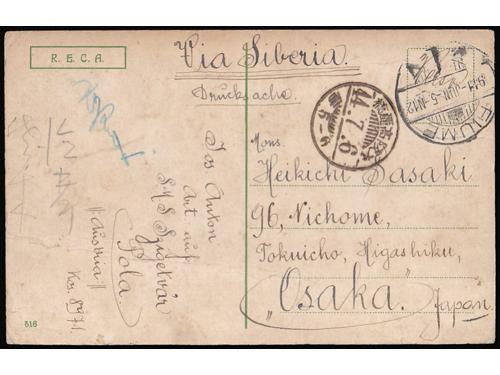 R. E. C. A.
Via Siberia.
Drucksache.
FIUME
44.7.6
Mons.
Heikichi Sasaki
96, Nichome,
Tokuicho, Higashiku,
„Osaka."
Japan.
Jos Anton
Art. auf
S.M.S Szigetvár
Pola.
„Austria"
516